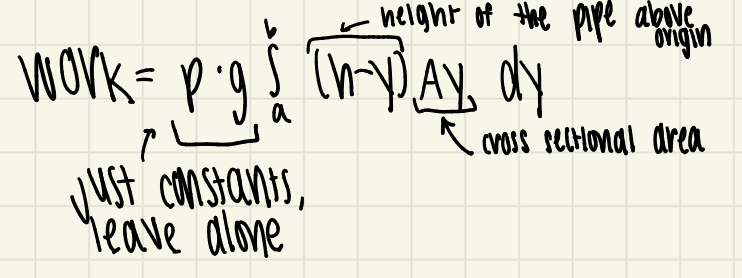 height of the pipe above
origin
work = p·g ∫ₐᵇ (h-y) Ay dy
cross sectional area
just constants,
leave alone